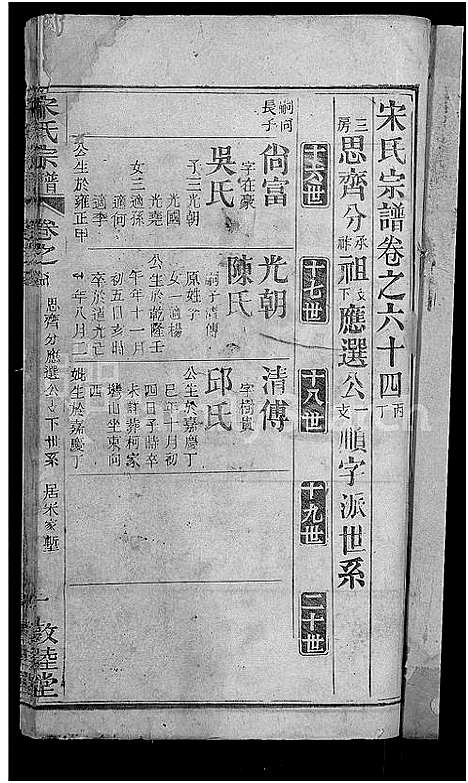 宋氏宗譜卷之六十四丙丁
三房思齊分承祥祖文下應選公一支順字派世系
十六世
十七世
十八世
十九世
二十世
嗣向長子
尙富
字在豪
吳氏
子三光朝
光國
光堯
女三適孫
適何
適李
公生於雍正甲
光朝
嗣子清傅
陳氏
原姓子
女一適楊
公生於乾隆壬
午年十一月
初五日亥時
卒於道光亡
年八月二
清傅
字樹貴
邱氏
公生於嘉慶丁
巳年十月初
四日子時卒
未詳葬柯家
山坐東向
西
妣生於嘉慶丁
宋氏宗譜
卷之
思齊分應選公支下世系
居宋家塹
一
敦睦堂